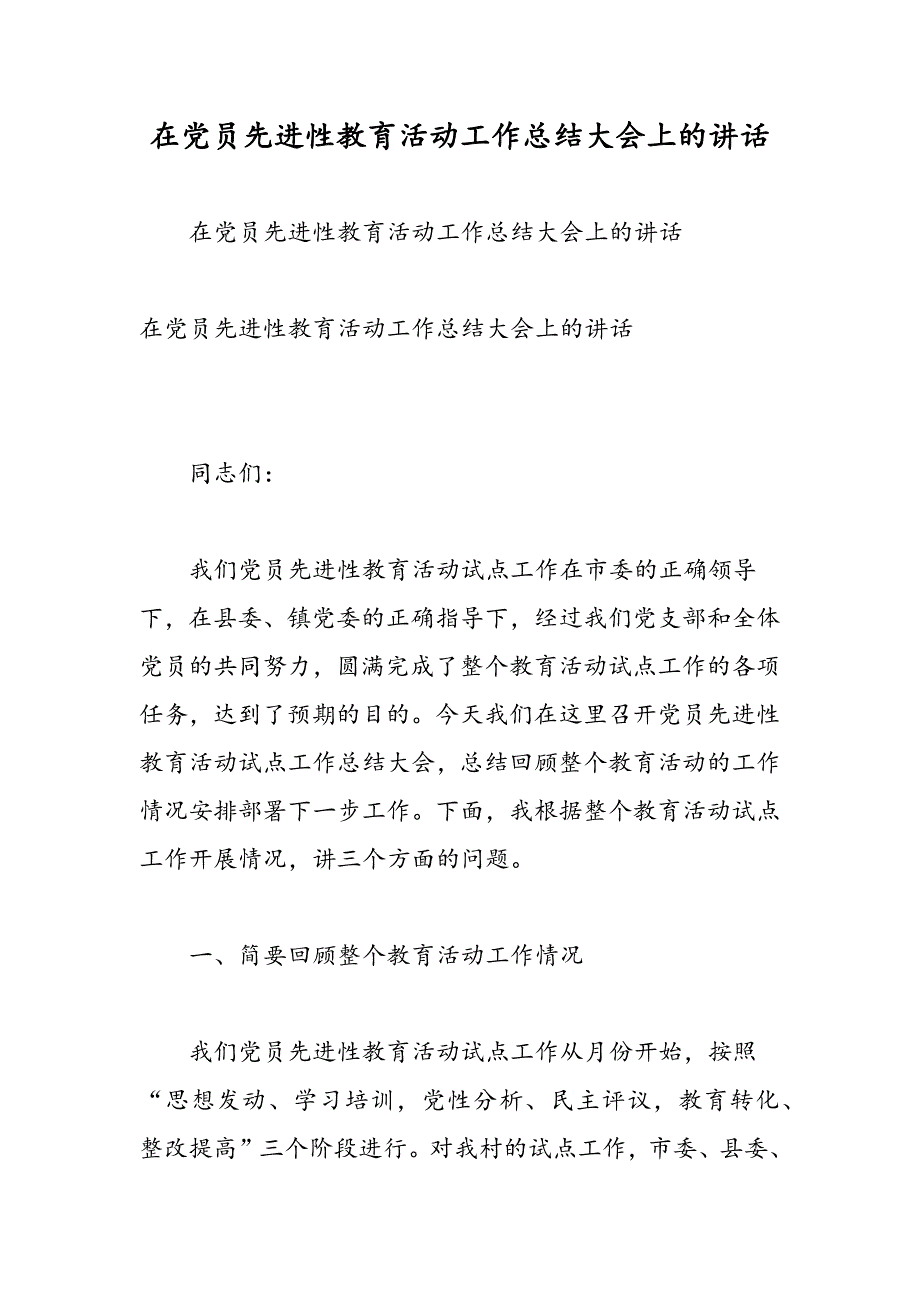 在党员先进性教育活动工作总结大会上的讲话
在党员先进性教育活动工作总结大会上的讲话
在党员先进性教育活动工作总结大会上的讲话
同志们：
我们党员先进性教育活动试点工作在市委的正确领导
下，在县委、镇党委的正确指导下，经过我们党支部和全体
党员的共同努力，圆满完成了整个教育活动试点工作的各项
任务，达到了预期的目的。今天我们在这里召开党员先进性
教育活动试点工作总结大会，总结回顾整个教育活动的工作
情况安排部署下一步工作。下面，我根据整个教育活动试点
工作开展情况，讲三个方面的问题。
一、简要回顾整个教育活动工作情况
我们党员先进性教育活动试点工作从月份开始，按照
“思想发动、学习培训，党性分析、民主评议，教育转化、
整改提高”三个阶段进行。对我村的试点工作，市委、县委、